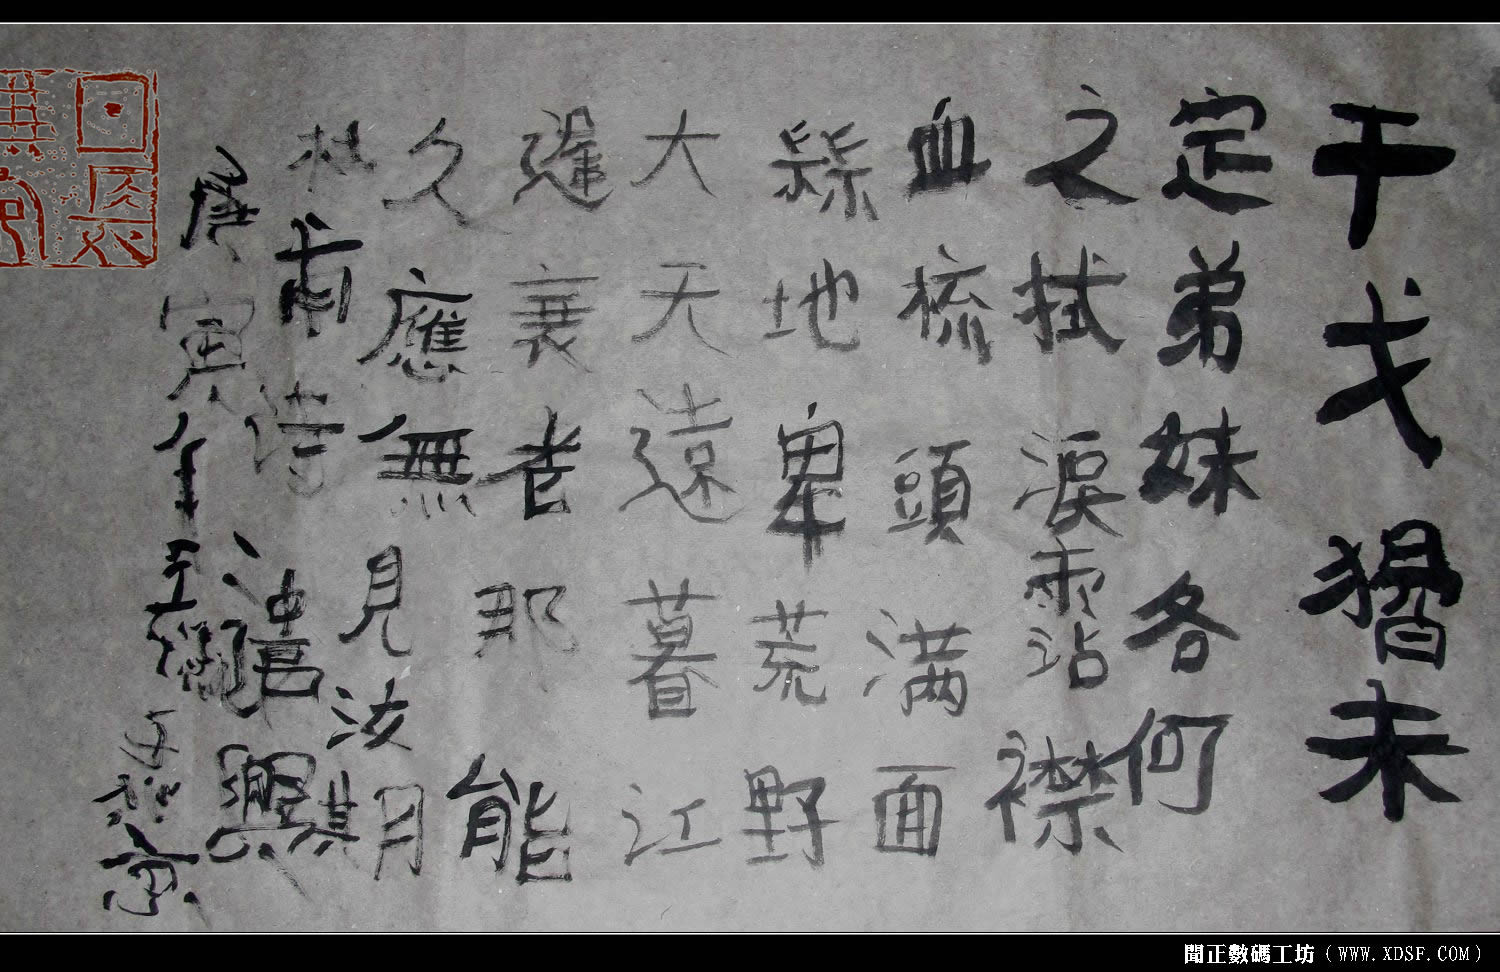 干戈猶未
定弟妹各何
之拭淚霑襟
血梳頭滿面
絲地卑荒野
大天遠暮江
遲衰老那能
久應無見汝期
杜甫詩遣興
庚寅年
聞正數碼工坊（WWW.XDSF.COM）